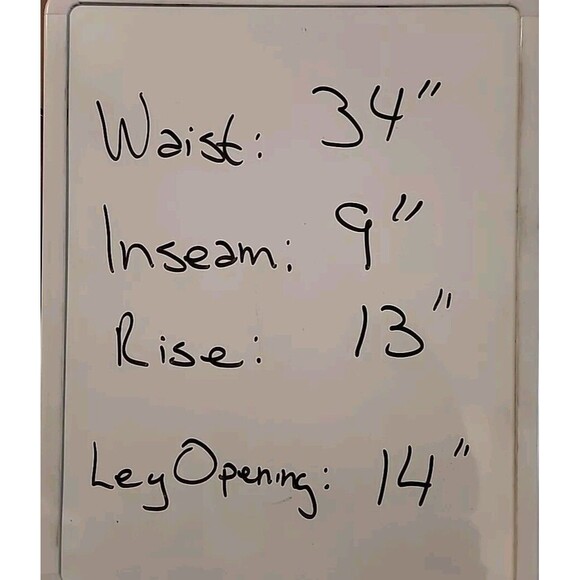 Waist: 34"
Inseam: 9"
Rise: 13"
Leg Opening: 14"